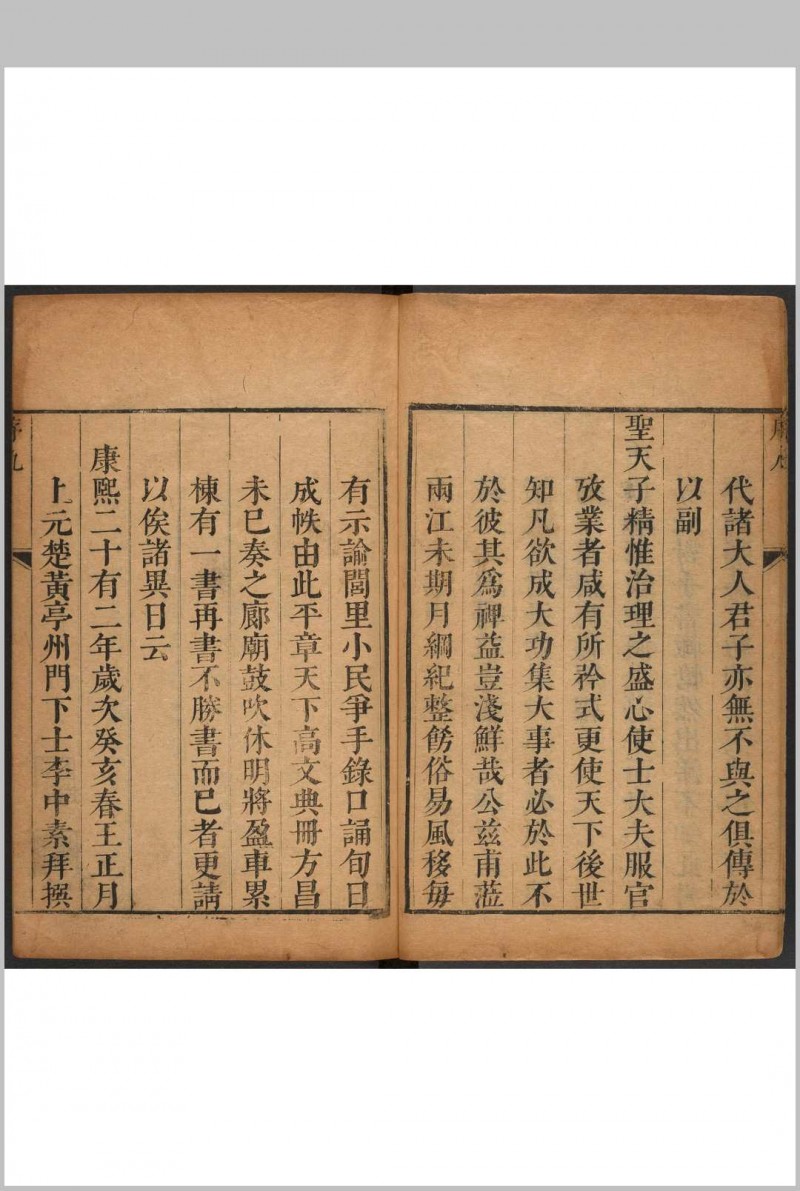 代諸大人君子亦無不與之俱傳於
以副
聖天子精惟治理之盛心使士大夫服官
攷業者咸有所衿式更使天下後世
知凡欲成大功集大事者必於此不
於彼其爲裨益豈淺鮮哉公兹甫蒞
兩江未期月綱紀整飭俗易風移每
有示諭閭里小民爭手錄口誦旬日
成帙由此平章天下高文典冊方昌
未已奏之廊廟鼓吹休明將盈車累
棟有一書再書不勝書而已者更請
以俟諸異日云
康熙二十有二年歲次癸亥春王正月
上元楚黃亭州門下士李中素拜撰
序九